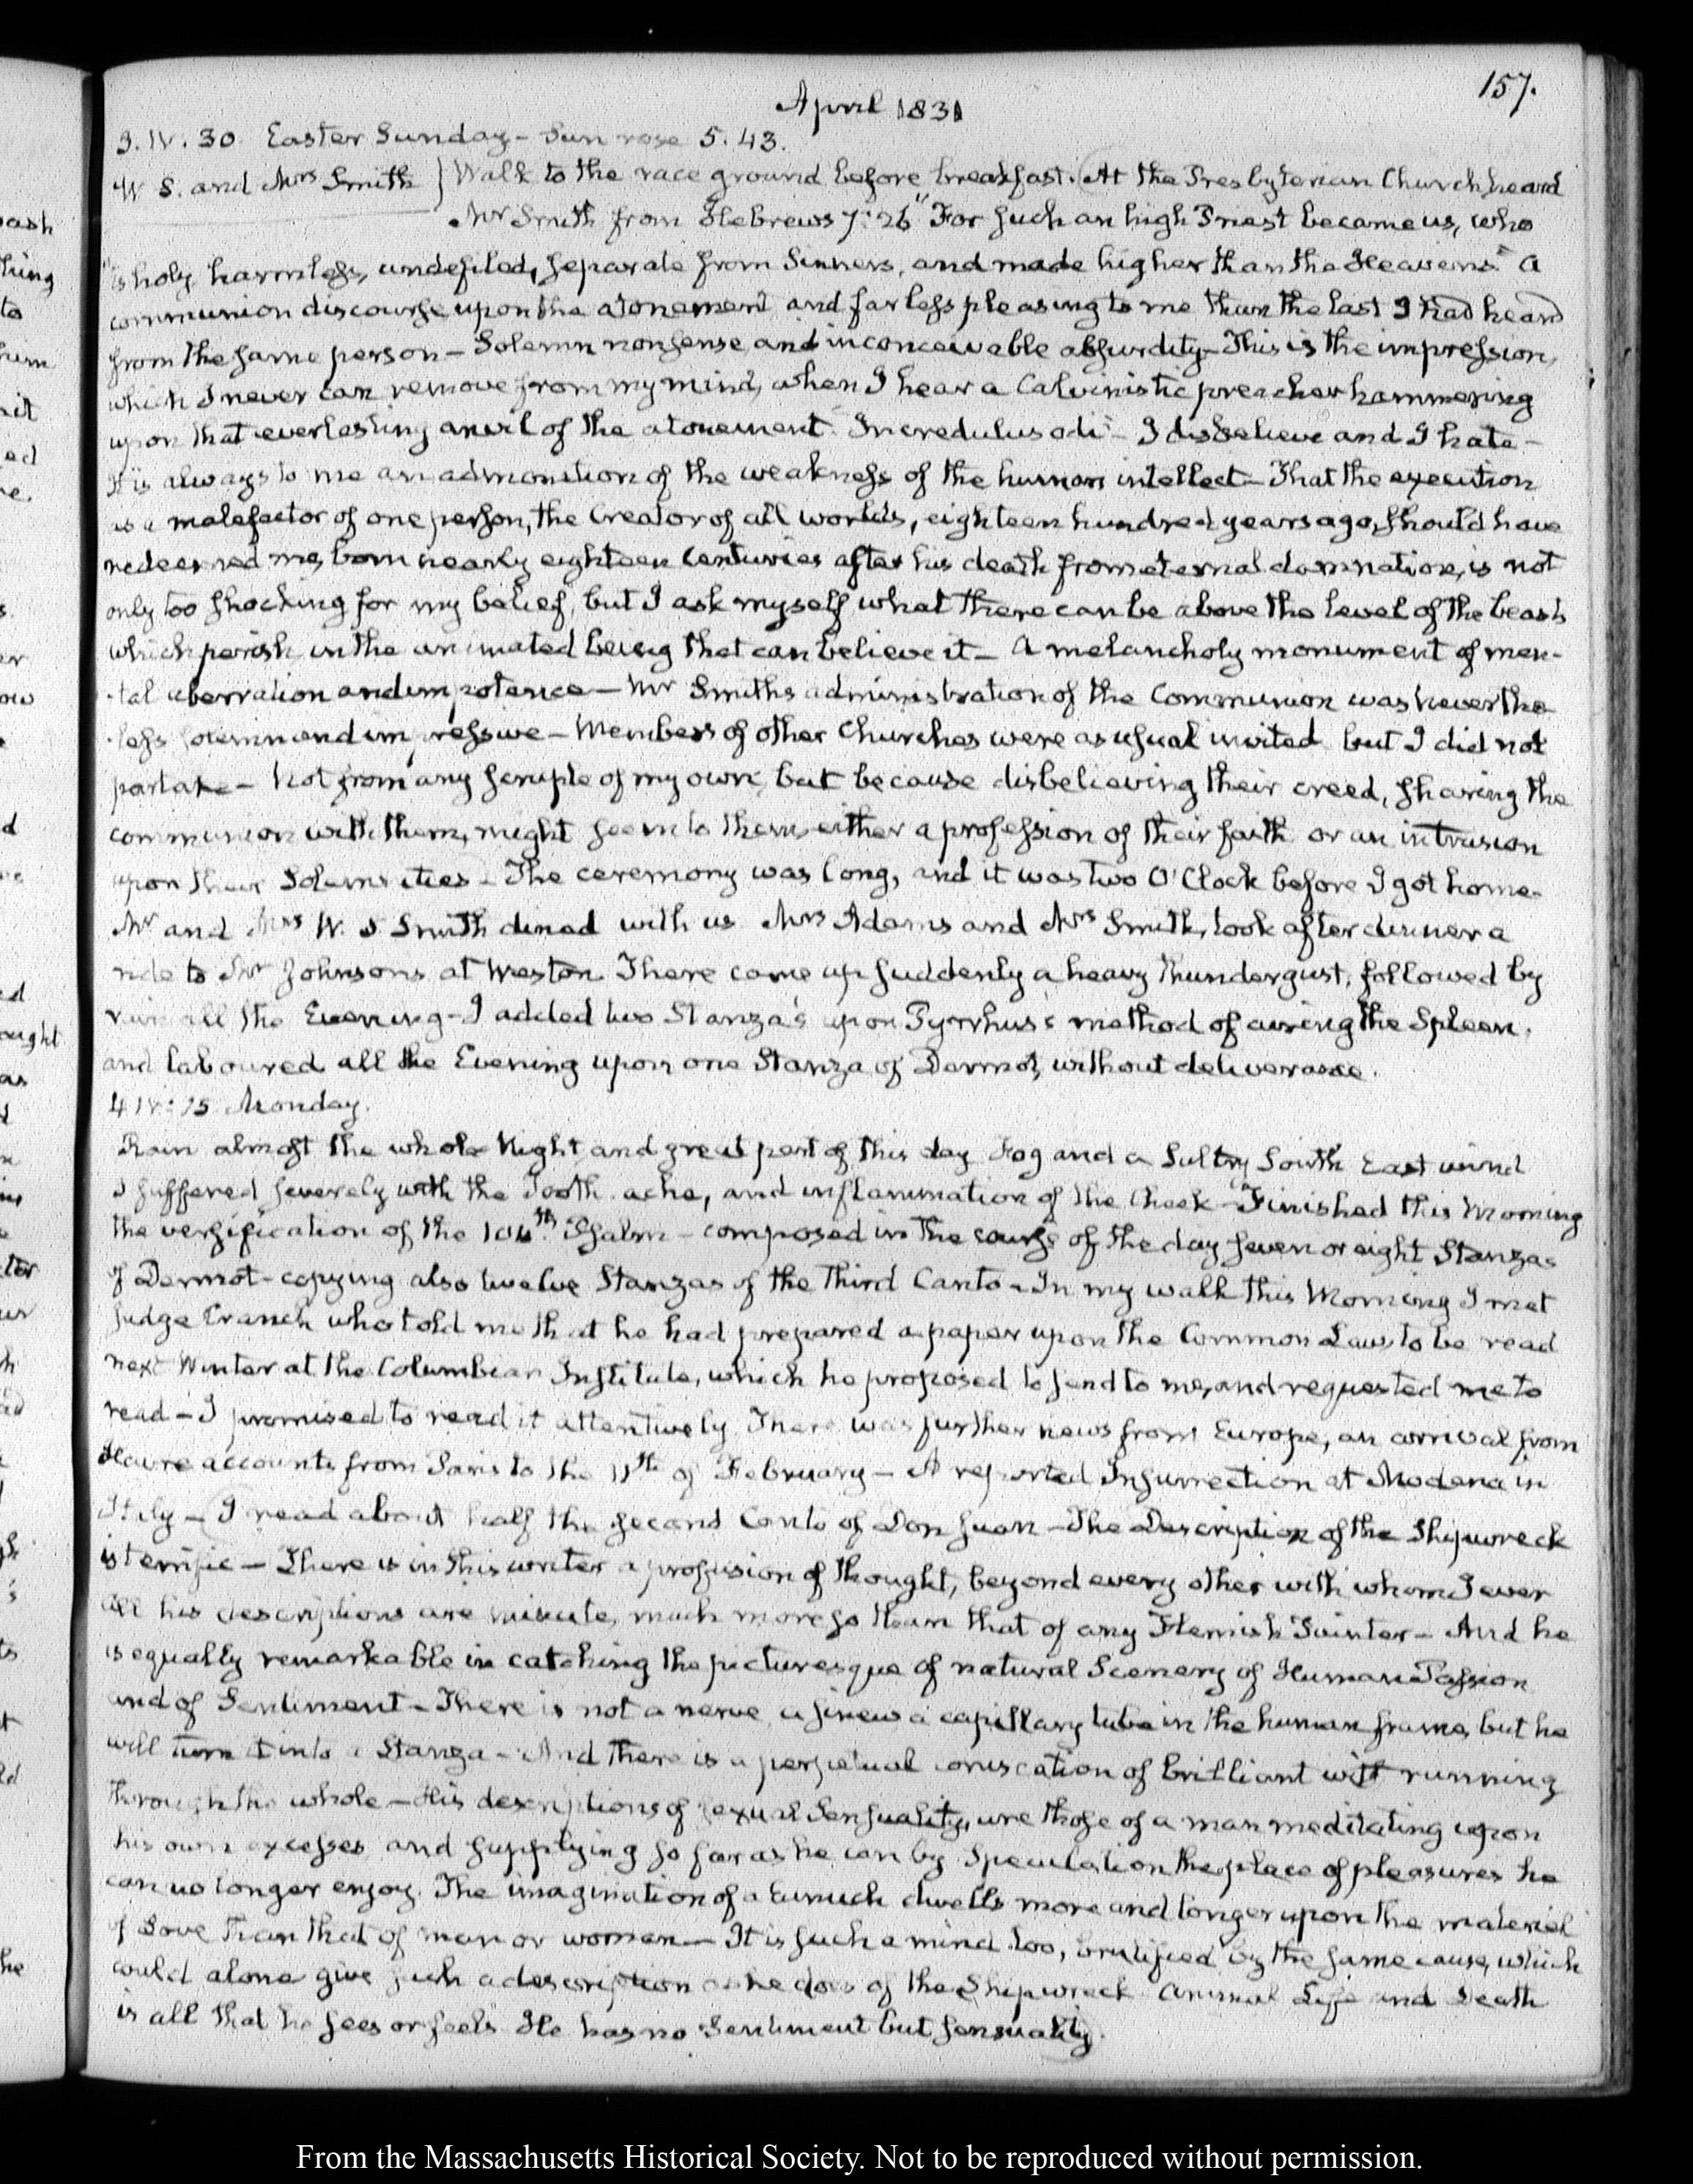 157.
April 1831
3. IV. 30. Easter Sunday – Sun rose 5.43.
W S. and Mrs Smith } Walk to the race ground before breakfast. At the Presbyterian Church, heard
Mr Smith from Hebrews 7:26 "For such an high Priest became us, who
"is holy, harmless, undefiled, separate from Sinners, and made higher than the Heavens" A
communion discourse upon the atonement and far less pleasing to me than the last I had heard
from the same person – Solemn nonsense and inconceivable absurdity – This is the impression,
which I never can remove from my mind, when I hear a Calvinistic preacher hammering
upon that everlasting anvil of the atonement. Incredulus odi – I disbelieve and I hate –
It is always to me an admonition of the weakness of the human intellect – That the execution
as a malefactor of one person, the Creator of all worlds, eighteen hundred years ago, should have
redeemed me, born nearly eighteen Centuries after his death from eternal damnation, is not
only too shocking for my belief, but I ask myself what there can be above the level of the beasts
which perish, in the animated being that can believe it – A melancholy monument of men-
-tal aberration and impotence – Mr Smith's administration of the Communion was neverthe-
-less solemn and impressive – Members of other Churches were as usual invited but I did not
partake – Not from any scruple of my own, but because disbelieving their creed, sharing the
communion with them, might seem to them either a profession of their faith or an intrusion
upon their Solemnities – The ceremony was long, and it was two O'Clock before I got home.
Mr and Mrs W. S. Smith dined with us Mrs Adams and Mrs Smith, took after dinner a
ride to Mr Johnsons at Weston. There came up suddenly a heavy thundergust, followed by
rain all the Evening – I added two Stanza's upon Pyrrhus's method of curing the Spleen,
and laboured all the Evening upon one Stanza of Dermot, without deliverance.
4 IV:15. Monday.
Rain almost the whole Night and great part of this day Fog and a Sultry South East wind
I suffered severely with the Tooth ache, and inflammation of the Cheek – Finished this Morning
the versification of the 104th Psalm – composed in the course of the day seven or eight Stanzas
of Dermot – copying also twelve Stanzas of the Third Canto – In my walk this Morning I met
Judge Cranch who told me that he had prepared a paper upon the Common Law, to be read
next Winter at the Columbian Institute, which he proposed to send to me, and requested me to
read – I promised to read it attentively There was further news from Europe, an arrival from
Havre accounts from Paris to the 11th of February – A reported Insurrection at Modena in
Italy – I read about half the second Canto of Don Juan – The Description of the Shipwreck
is terrific – There is in this writer a profusion of thought, beyond every other with whom I ever
All his descriptions are minute, much more so than that of any Flemish Painter – And he
is equally remarkable in catching the picturesque of natural Scenery of Human Passion
and of Sentiment – There is not a nerve a sinew a capillary tube in the human frame, but he
will turn it into a Stanza – And there is a perpetual coruscation of brilliant wit running
through the whole – His descriptions of sexual Sensuality, are those of a man meditating upon
his own excesses and supplying so far as he can by Speculation the place of pleasures he
can no longer enjoy. The imagination of a Eunuch dwells more and longer upon the material
of Love than that of man or woman – It is such a mind too, brutified by the same cause, which
could alone give such a description as he does of the Shipwreck Animal Life and Death
is all that he sees or feels He has no Sentiment but sensuality.
From the Massachusetts Historical Society. Not to be reproduced without permission.